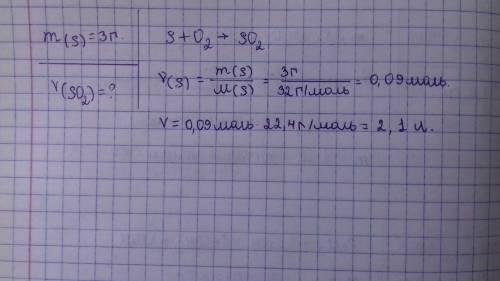 m(S) = 3г.
V(SO2) = ?
S + O2 → SO2
ν(S) = m(S)/M(S) = 3г/32г/моль = 0,09моль.
V = 0,09моль 22,4г/моль = 2,1 л.